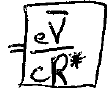 = eV̅ / cR*